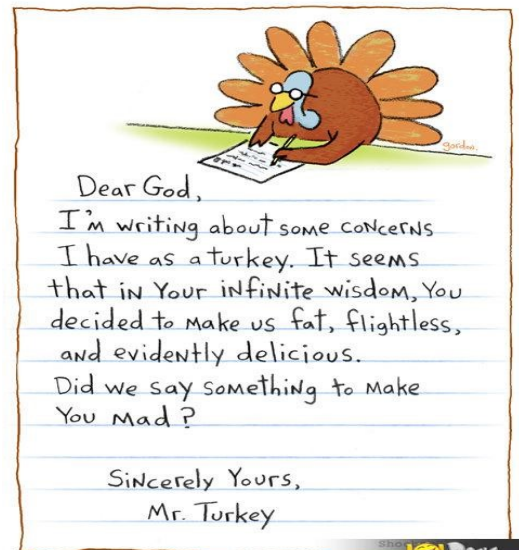 gordon.
Dear God,
I'm writing about some concerns
I have as a turkey. It seems
that in Your infinite wisdom, You
decided to make us fat, flightless,
and evidently delicious.
Did we say something to make
You mad?
Sincerely Yours,
Mr. Turkey